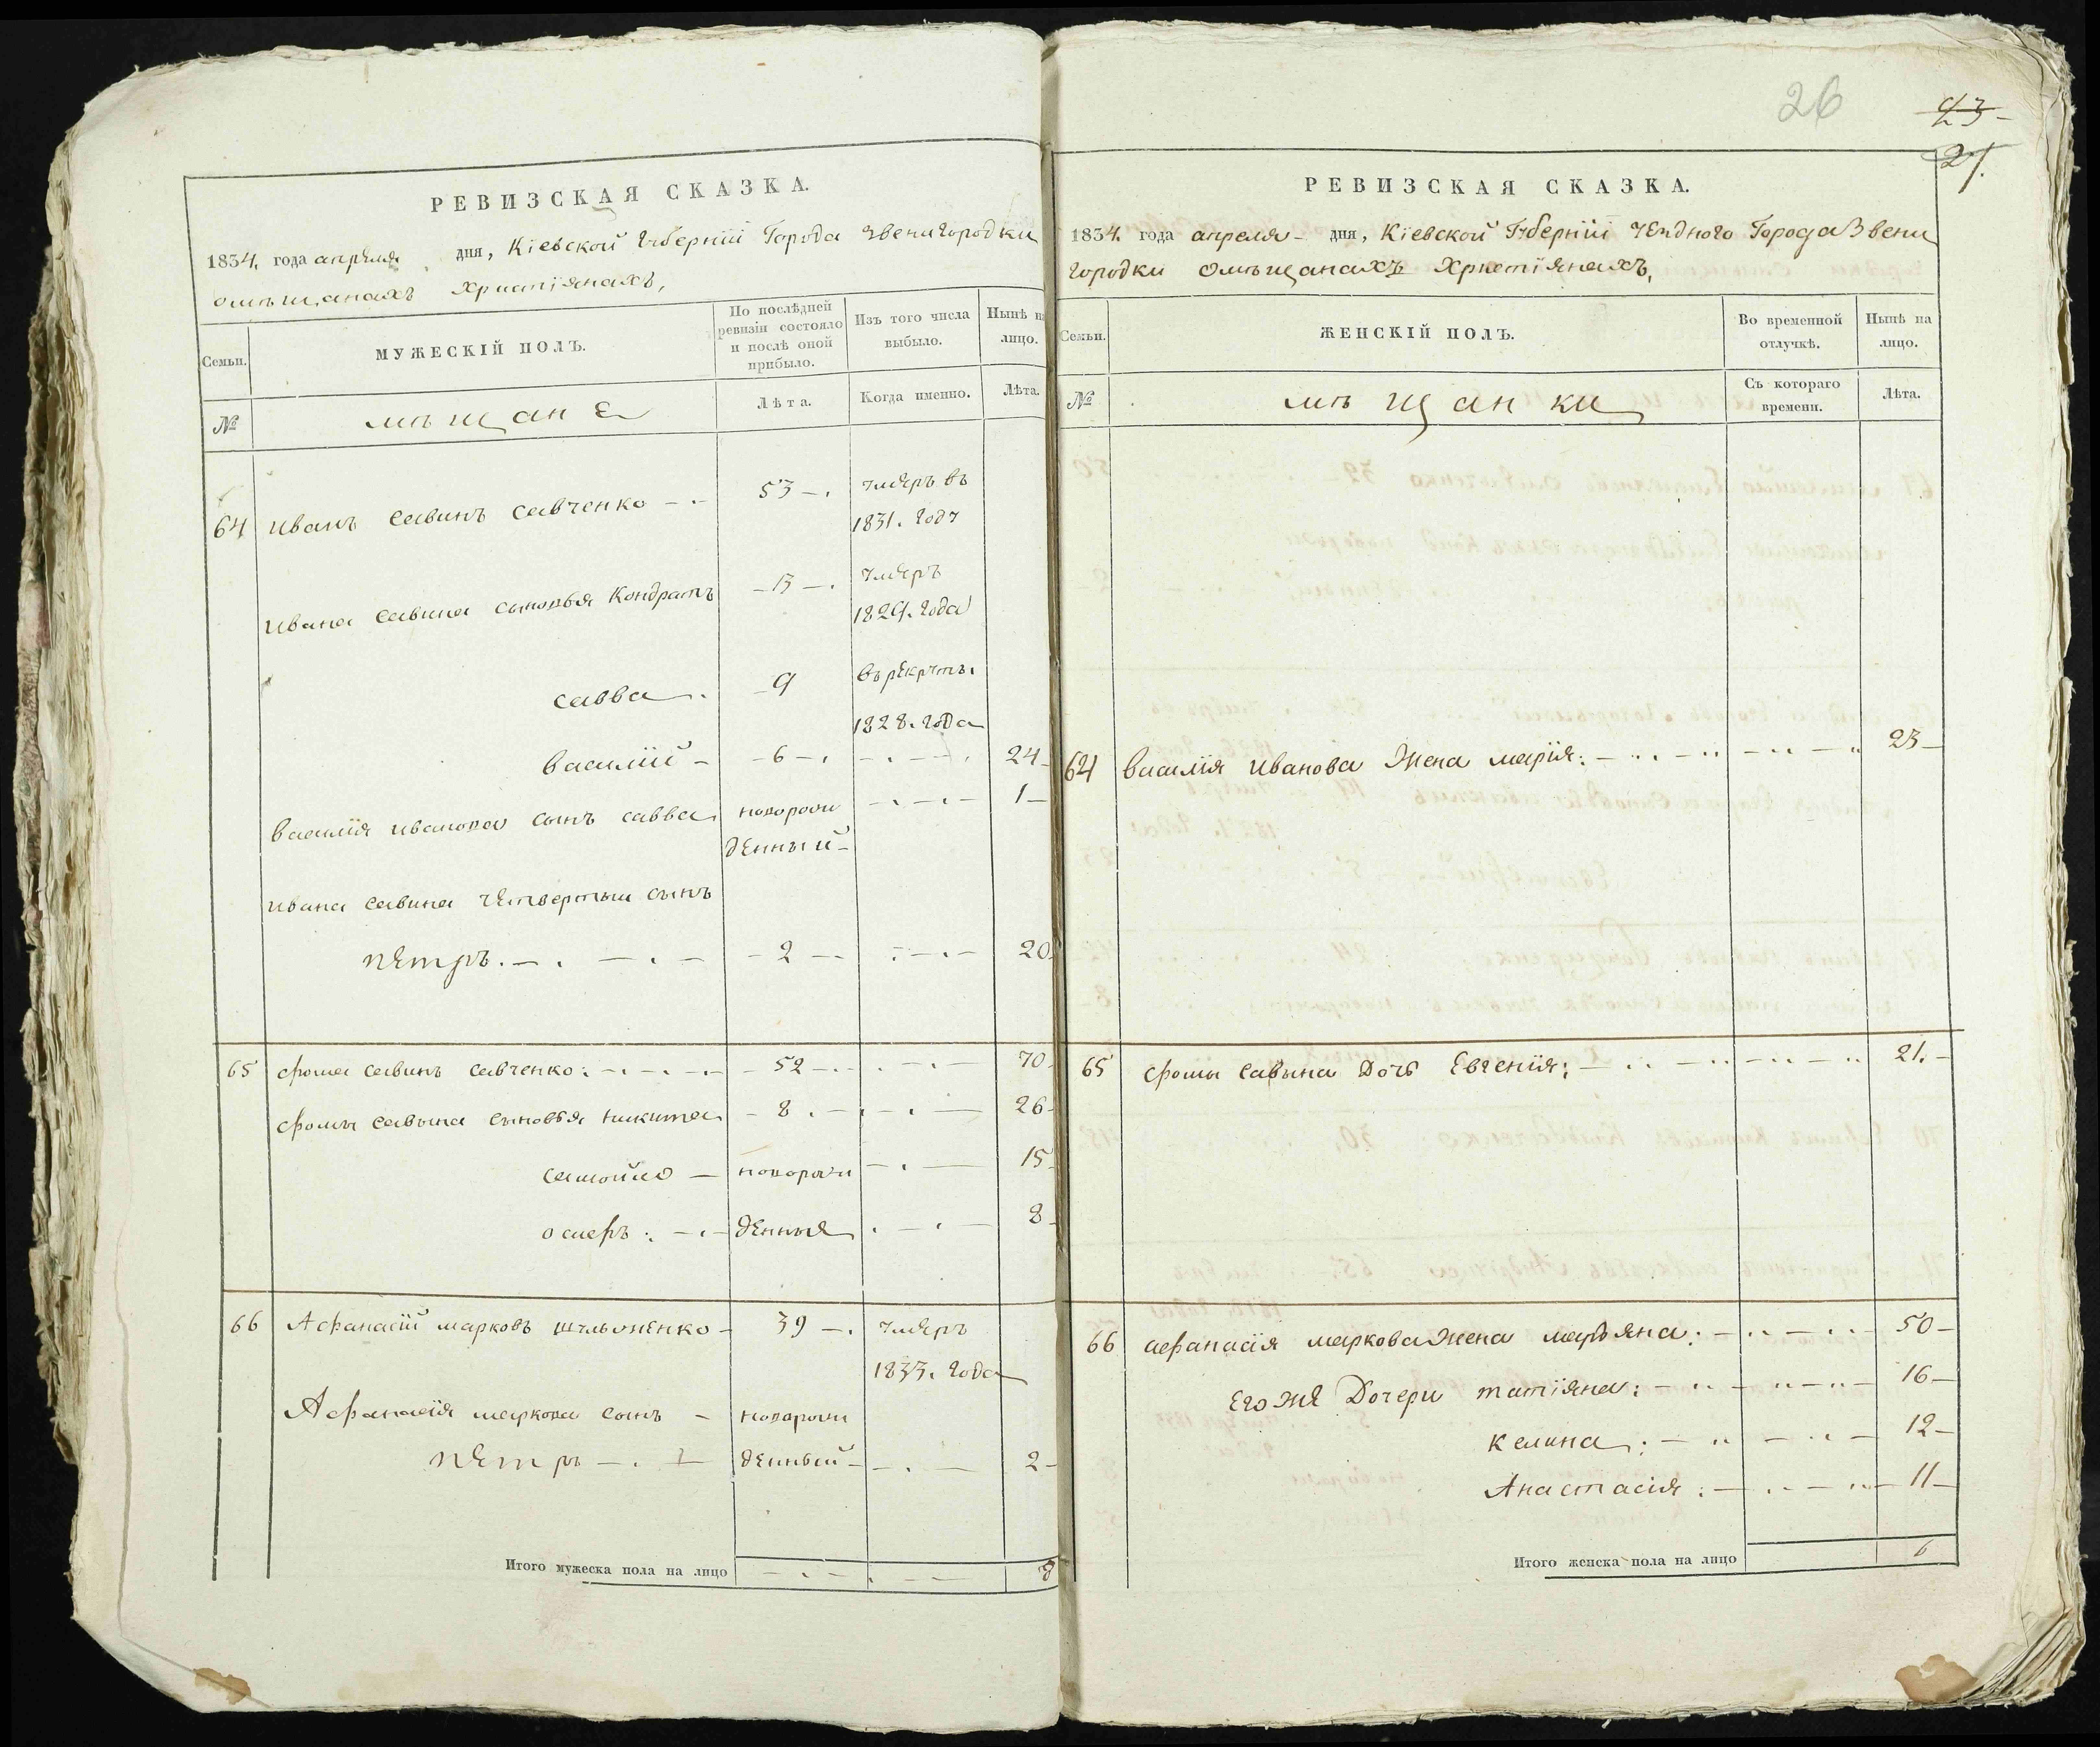 26
23
21.
РЕВИЗСКАЯ СКАЗКА.
1834. года апреля дня, Кіевской Губерніи Города Звенигородки
омѣщанахъ Христіянахъ,
Семьи.
МУЖЕСКІЙ ПОЛЪ.
По послѣдней ревизіи состояло и послѣ оной прибыло.
Изъ того числа выбыло.
Нынѣ на лицо.
№
мѣщане
Лѣта.
Когда именно.
Лѣта.
64 Иванъ Савинъ Савченко — 53 — умеръ въ
1831. году
Ивана Савина сыновья Кондратъ — 13 — умеръ
1829. года
Савва — 9 въ рекруты
1828. года
Василій — 6 — 24
Василія Иванова сынъ Савва новорож 1
денный
Ивана Савина четвертый сынъ
Петръ — 2 — 20
65 Фома Савинъ Савченко — 52 — 70
Фомы Савына сыновья Никита — 8 — 26
Самойло — новорож 15
осиеъ — денныя 8
66 Афанасій Марковъ — 39 — умеръ
1833. года
Афанасія Маркова сынъ — новорож
Петръ — денный — 2
Итого мужеска пола на лицо 8
РЕВИЗСКАЯ СКАЗКА.
1834. года апреля дня, Кіевской Губерніи уезднаго Города Звени
городки омѣщанахъ Христіянахъ,
Семьи.
ЖЕНСКІЙ ПОЛЪ.
Во временной отлучкѣ.
Нынѣ на лицо.
№
мѣщанки
Съ котораго времени.
Лѣта.
64 Василія Иванова Жена марія: — 23
65 Фомы Савына Дочь Евгенія: — 21.
66 афанасія маркова Жена марьяна: — 50
Егоже Дочери татіяна: — 16
келина: — 12
Анастасія: — 11
Итого женска пола на лицо 6